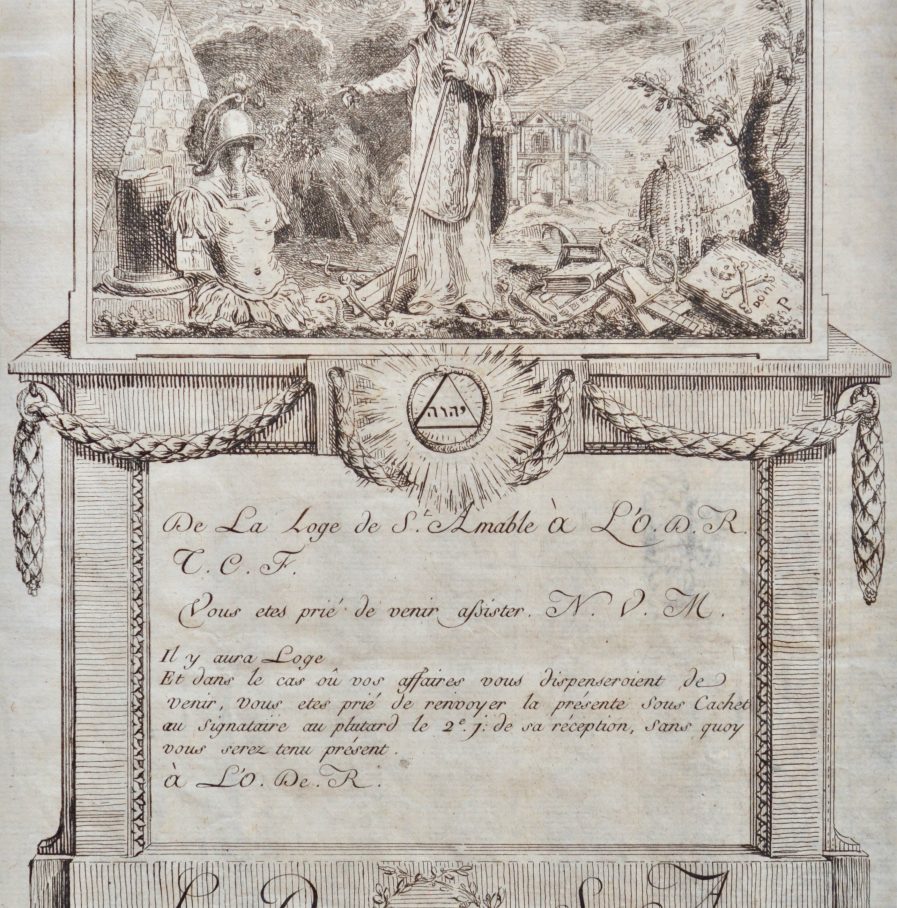 P
יהוה
De La Loge de St. Amable à L'O. D. R.
T. C. F.
Vous etes prié de venir assister. N. V. M.
Il y aura Loge
Et dans le cas où vos affaires vous dispenseroient de
venir, vous etes prié de renvoyer la présente sous Cachet
au signataire au plutard le 2e. j: de sa réception, sans quoy
vous serez tenu présent.
à L'O. De. R.
L D S A